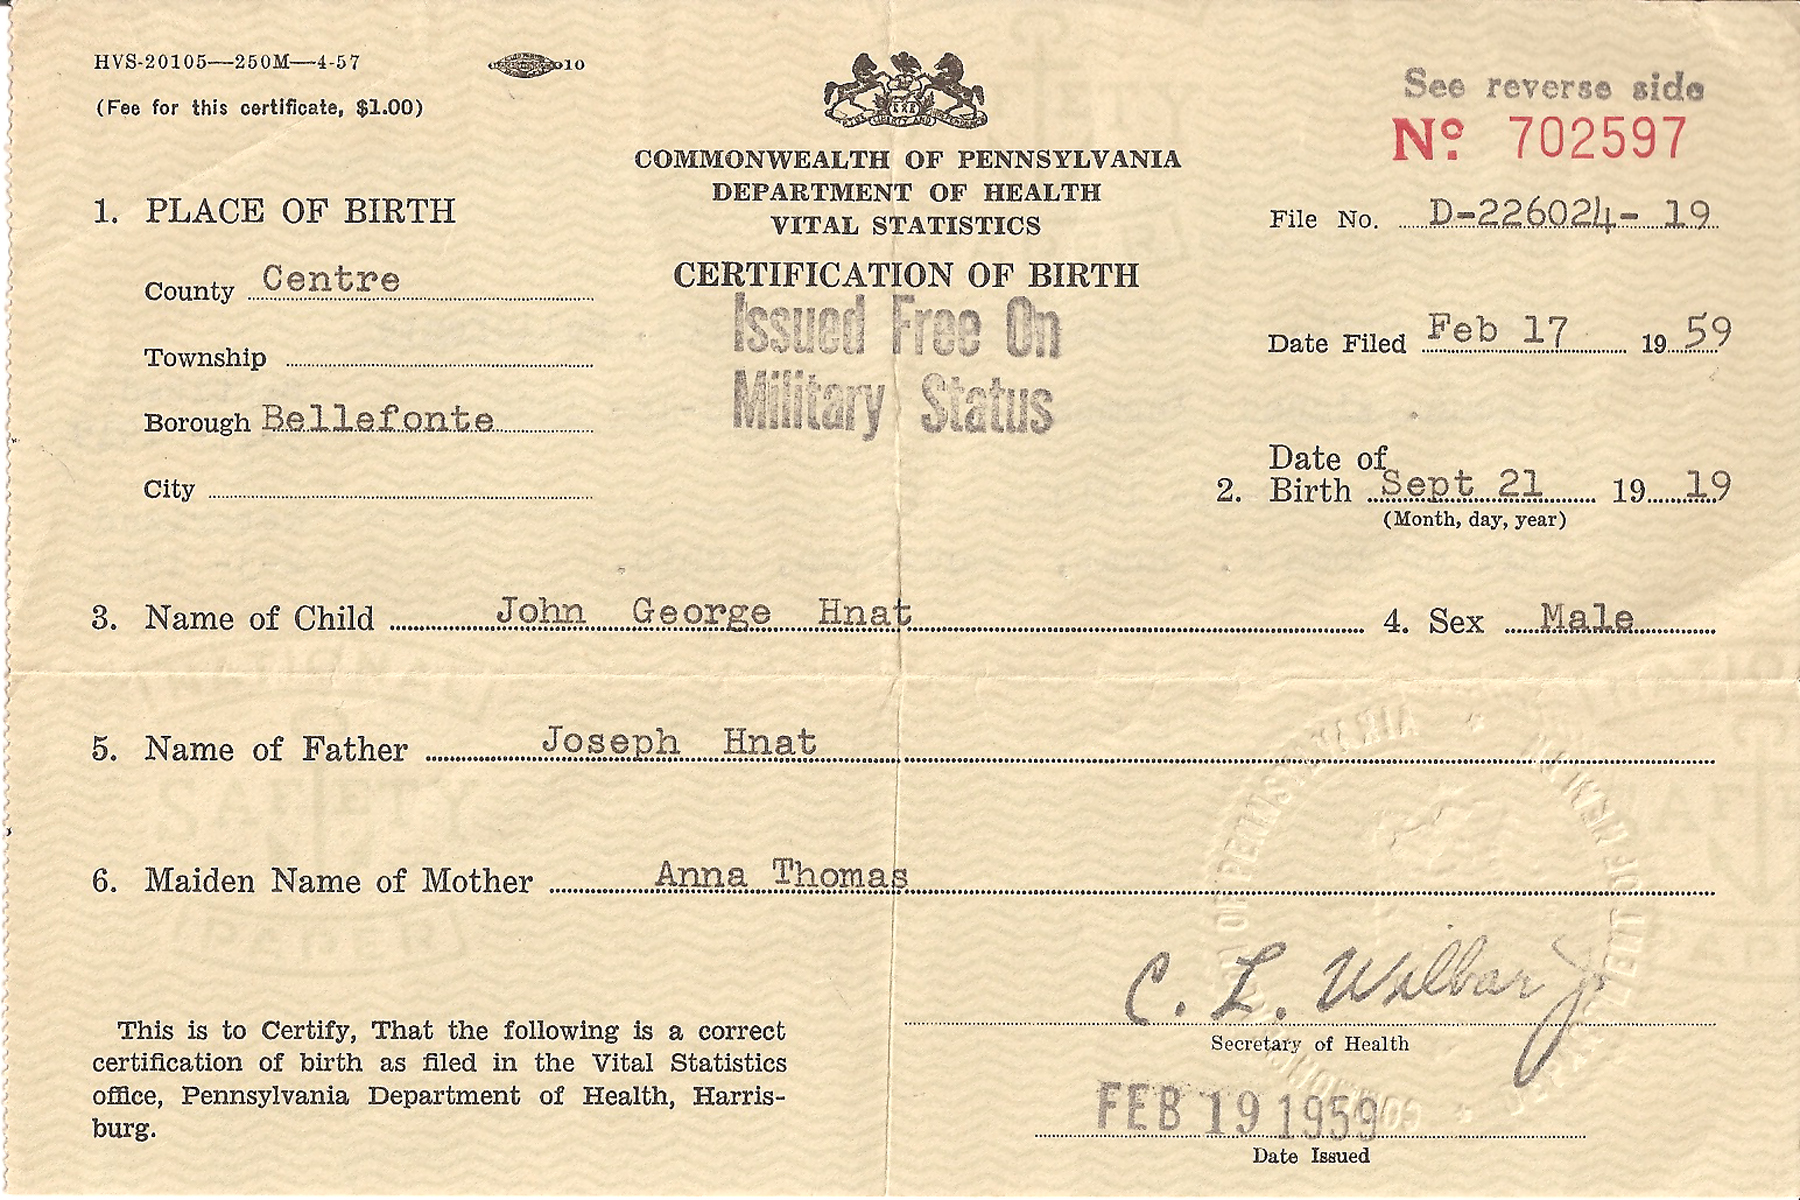 HVS-20105—250M—4-57
10
(Fee for this certificate, $1.00)
See reverse side
No. 702597
COMMONWEALTH OF PENNSYLVANIA
DEPARTMENT OF HEALTH
VITAL STATISTICS
CERTIFICATION OF BIRTH
Issued Free On
Military Status
File No. D-226024- 19
Date Filed Feb 17 1959
1. PLACE OF BIRTH
County Centre
Township
Borough Bellefonte
City
Date of
2. Birth Sept 21 1919
(Month, day, year)
3. Name of Child John George Hnat 4. Sex Male
5. Name of Father Joseph Hnat
6. Maiden Name of Mother Anna Thomas
This is to Certify, That the following is a correct
certification of birth as filed in the Vital Statistics
office, Pennsylvania Department of Health, Harris-
burg.
C. L. Wilbar Jr
Secretary of Health
FEB 19 1959
Date Issued
SAFETY
PAPER